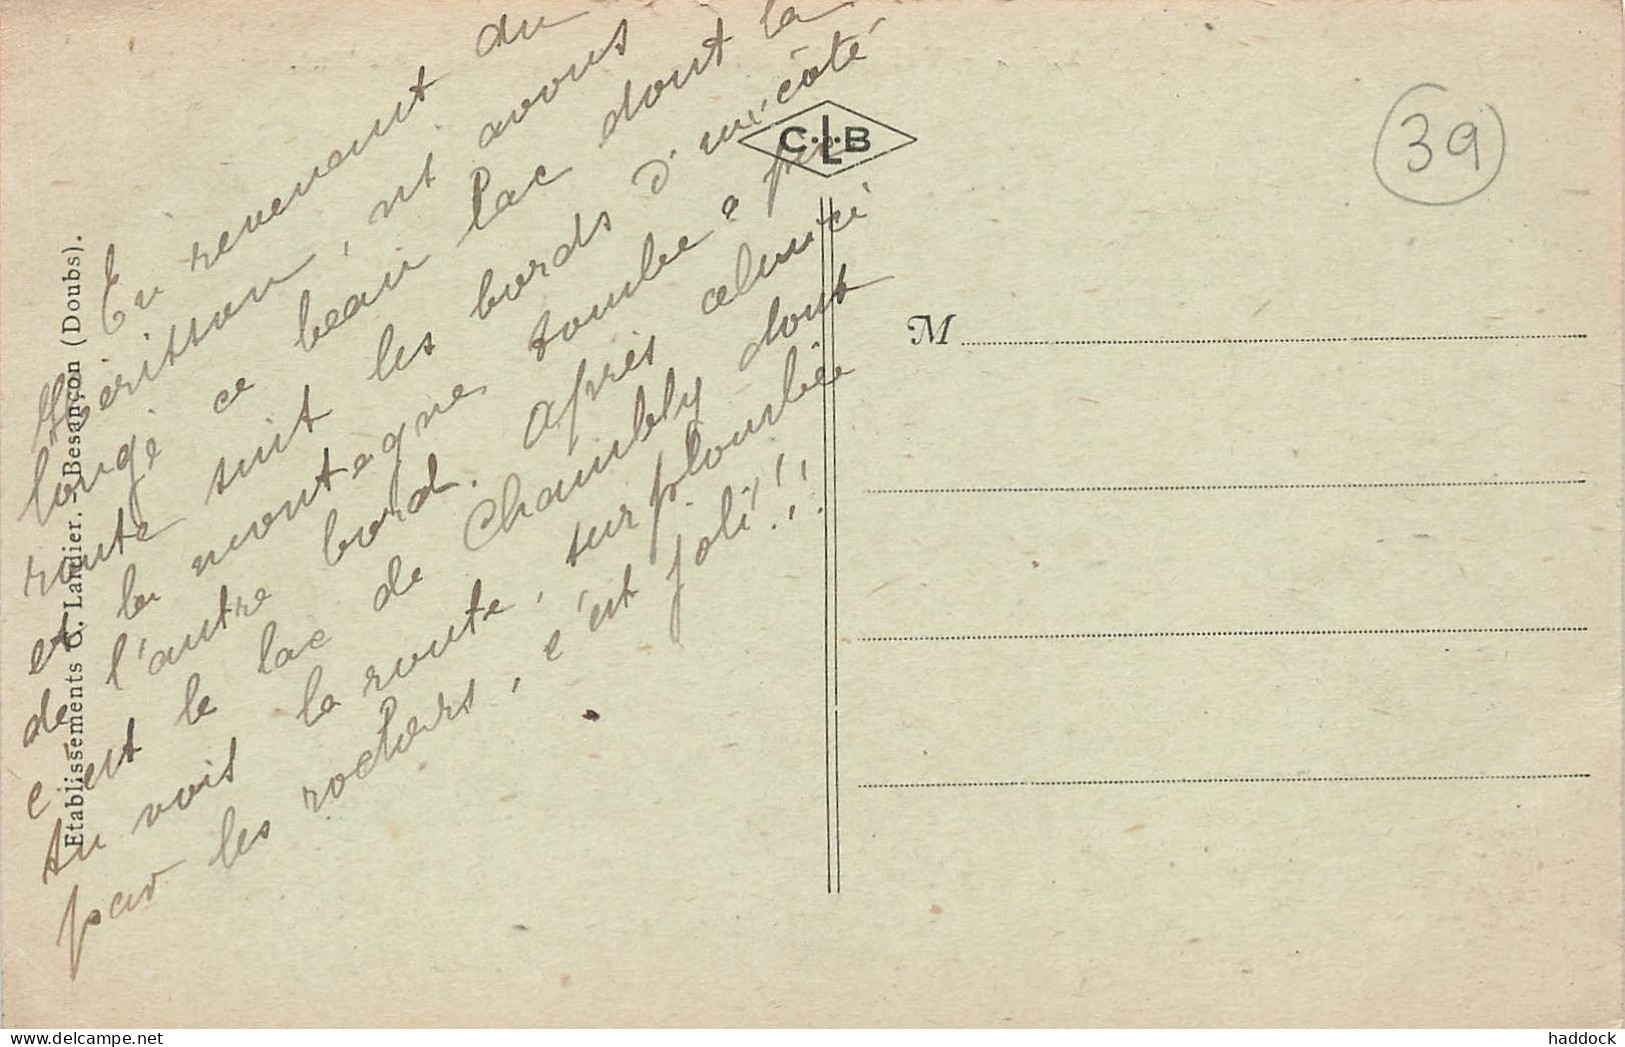 En revenant du
Hérisson, nt avons
longé ce beau lac dont la
route suit les bords d'un côté
et la montagne tombe à pic
de l'autre bord. Après celui ci
c'est le lac de Chambly dont
tu vois la route, surplombée
par les rochers, c'est joli!!!
Etablissements C. Lardier. - Besançon (Doubs).
C.L.B
39
M
haddock